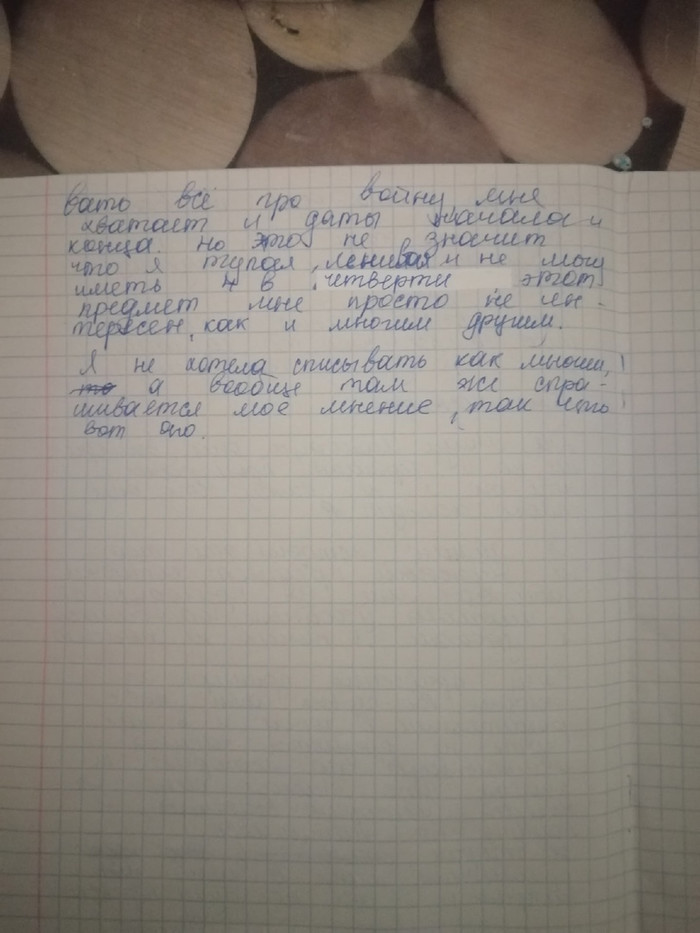 вать всё про войну, мне
хватает и даты начала и
конца. Но это не значит
что я тупая, ленивая и не могу
иметь 4 в четверти этот
предмет мне просто не ин-
тересен, как и многим другим.
Я не хотела списывать как многие,
то а вообще там же спра-
шивается мое мнение, так что
вот оно.